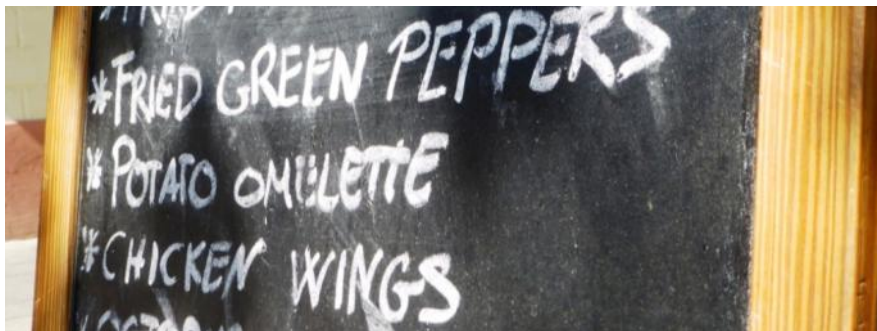 *FRIED GREEN PEPPERS
*POTATO OMELETTE
*CHICKEN WINGS